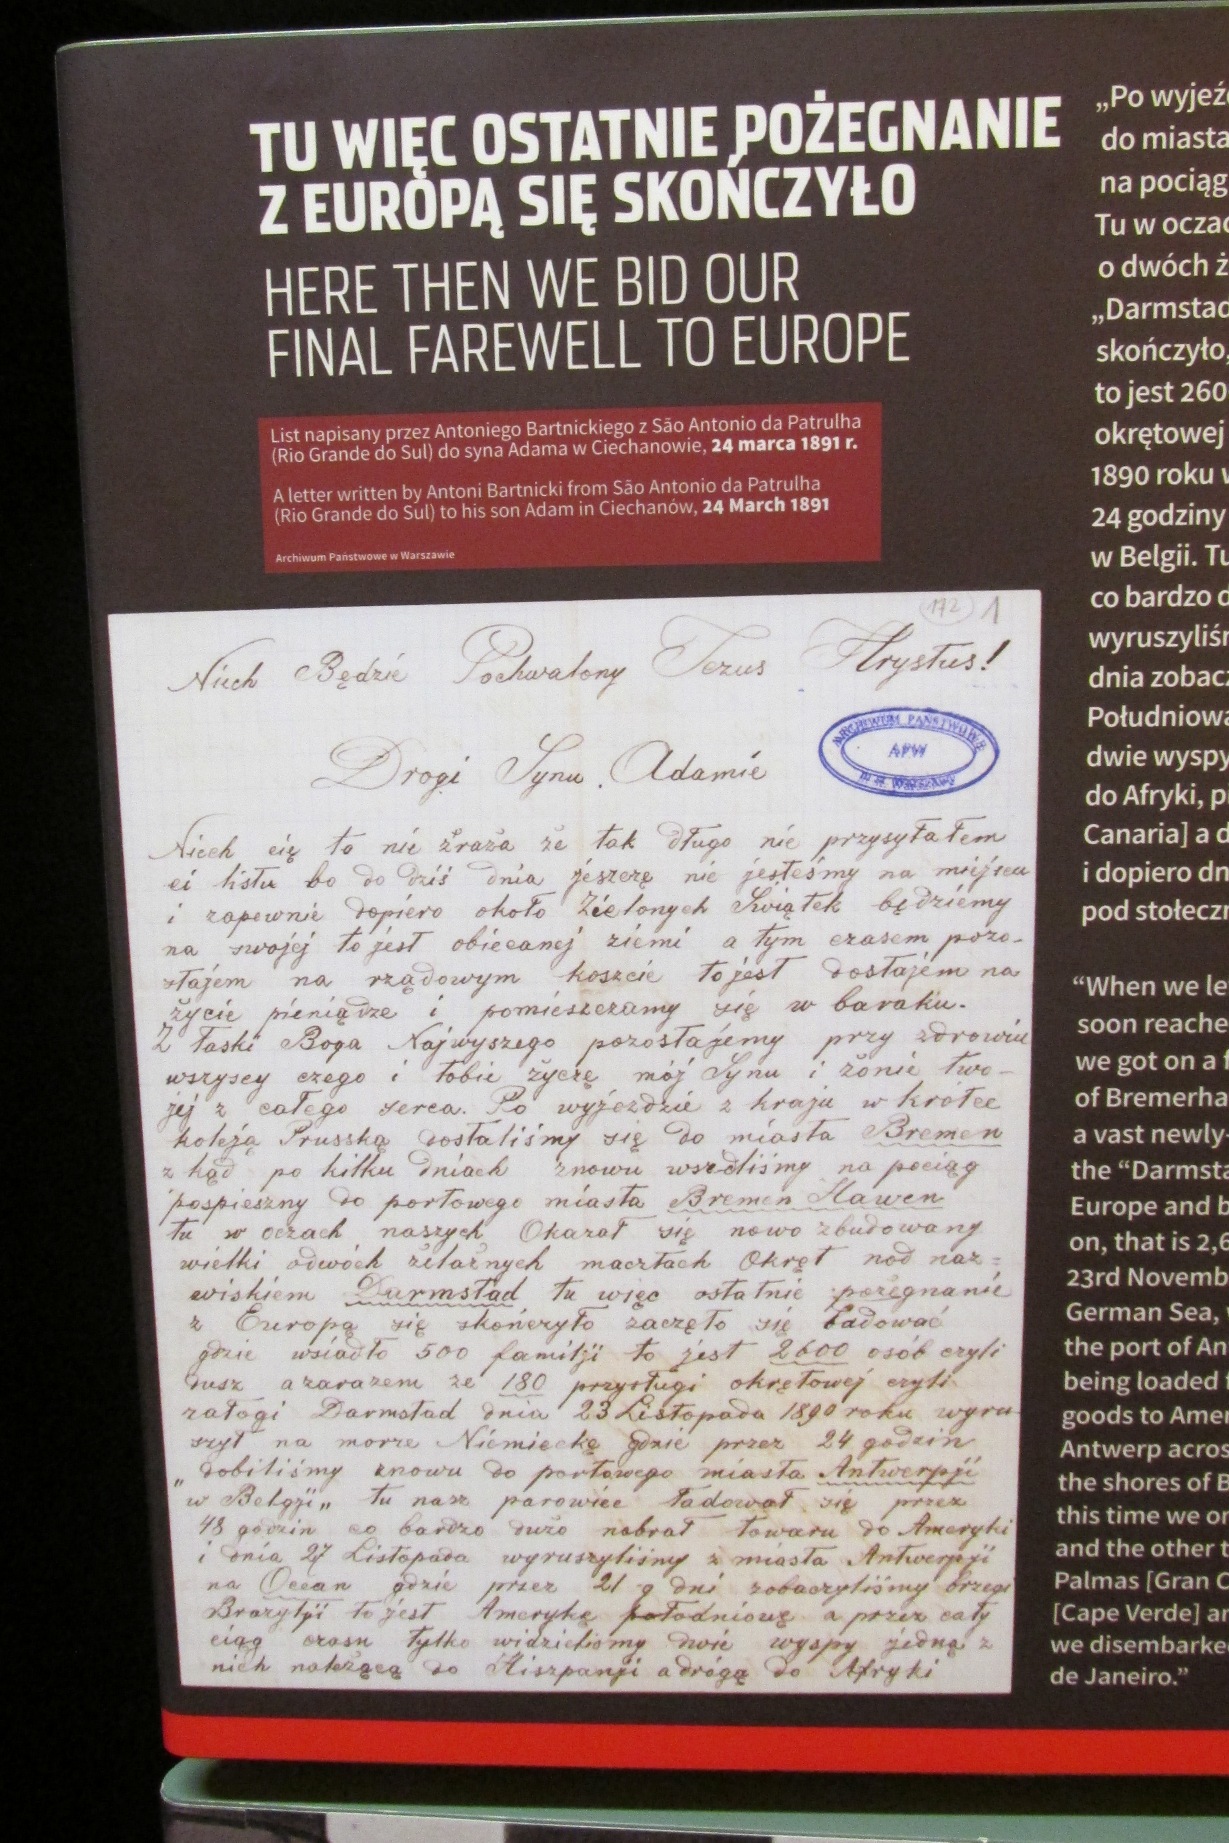 TU WIĘC OSTATNIE POŻEGNANIE
Z EUROPĄ SIĘ SKOŃCZYŁO
HERE THEN WE BID OUR
FINAL FAREWELL TO EUROPE
List napisany przez Antoniego Bartnickiego z São Antonio da Patrulha
(Rio Grande do Sul) do syna Adama w Ciechanowie, 24 marca 1891 r.
A letter written by Antoni Bartnicki from São Antonio da Patrulha
(Rio Grande do Sul) to his son Adam in Ciechanów, 24 March 1891
Archiwum Państwowe w Warszawie
172 1
Niech Będzie Pochwalony Jezus Hrystus!
ARCHIWUM PAŃSTWOWE
APW
m. st. Warszawy
Drogi Synu Adamie
Niech cię to nie zraża że tak długo nie przysyłałem
ci listu bo do dziś dnia jeszcze nie jesteśmy na miejscu
i zapewnie dopiero około Zielonych Świątek będziemy
na swojej to jest obiecanej ziemi a tym czasem pozo-
stajem na rządowym koszcie to jest dostajem na
życie pieniądze i pomieszczamy się w baraku.
Z łaski Boga Najwyszego pozostajemy przy zdrowiu
wszyscy czego i tobie życzę mój Synu i żonie two-
jej z całego serca. Po wyjezdzie z kraju w krótce
koleją Prusską dostaliśmy się do miasta Bremen
z kąd po kilku dniach znowu wsedliśmy na pociąg
pospieszny do portowego miasta Bremen Hawen
tu w oczach naszych Okazał się nowo zbudowany
wielki odwóch żelaznych masztach Okręt pod naz=
wiskiem Darmstad tu więc ostatnie pożegnanie
z Europą się skończyło zaczęto się ładować
gdzie wsiadło 500 familji to jest 2600 osób czyli
dusz azarazem ze 180 przysługi okrętowej czyli
załogi Darmstad dnia 23 Listopada 1890 roku wyru-
szył na morze Niemieckę gdzie przez 24 godzin
„dobiliśmy znowu do portowego miasta Antwerpji
„w Belgji„ tu nasz parowiec ładował się przez
48 godzin co bardzo dużo nabrał towaru do Ameryki
i dnia 27 Listopada wyruszyliśmy z miasta Antwerpji
na Ocean gdzie przez 21 dni zobaczyliśmy brzegi
Brazylji to jest Amerykę połodniowę a przez cały
ciąg czasu tylko widzieliśmy dwie wyspy jedną z
nich należącą do Hiszpanji a drógą do Afryki
„Po wyjeź
do miasta
na pociąg
Tu w oczac
o dwóch ż
„Darmstad
skończyło,
to jest 260
okrętowej
1890 roku w
24 godziny
w Belgii. Tu
co bardzo d
wyruszyliśm
dnia zobacz
Południowa
dwie wyspy
do Afryki, p
Canaria] a d
i dopiero dn
pod stołeczn
“When we le
soon reache
we got on a f
of Bremerha
a vast newly-
the “Darmsta
Europe and b
on, that is 2,6
23rd Novemb
German Sea,
the port of An
being loaded f
goods to Amer
Antwerp across
the shores of B
this time we on
and the other t
Palmas [Gran C
[Cape Verde] an
we disembarke
de Janeiro.”